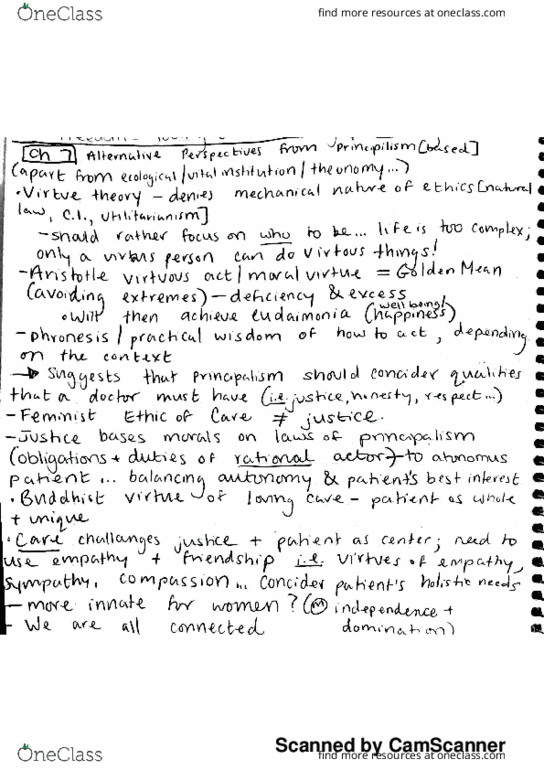 OneClass
find more resources at oneclass.com
Ch 7 Alternative Perspectives from principilism [based]
(apart from ecological/vital institution/theonomy...)
• Virtue theory - denies mechanical nature of ethics [natural
law, C.I., utilitarianism]
- should rather focus on who to be... life is too complex;
only a person can do virtous things!
- Aristotle virtuous act/moral virtue = Golden Mean
(avoiding extremes) - deficiency & excess
• Will then achieve eudaimonia (happiness) (well being)
- phronesis/practical wisdom of how to act, depending
on the context
→ Suggests that principalism should consider qualities
that a doctor must have (i.e justice, honesty, respect...)
- Feminist Ethic of Care ≠ justice.
- Justice bases morals on laws of principalism
(obligations + duties of rational actor) to
patient... balancing autonomy & patient's best interest
• Buddhist virtue of loving care - patient as whole
+ unique
• Care challanges justice + patient as center; need to
use empathy + friendship i.e. virtues of empathy,
sympathy, compassion... concider patient's holistic needs
- more innate for women? (M independence +
domination)
- We are all connected
Scanned by CamScanner
OneClass
find more resources at oneclass.com